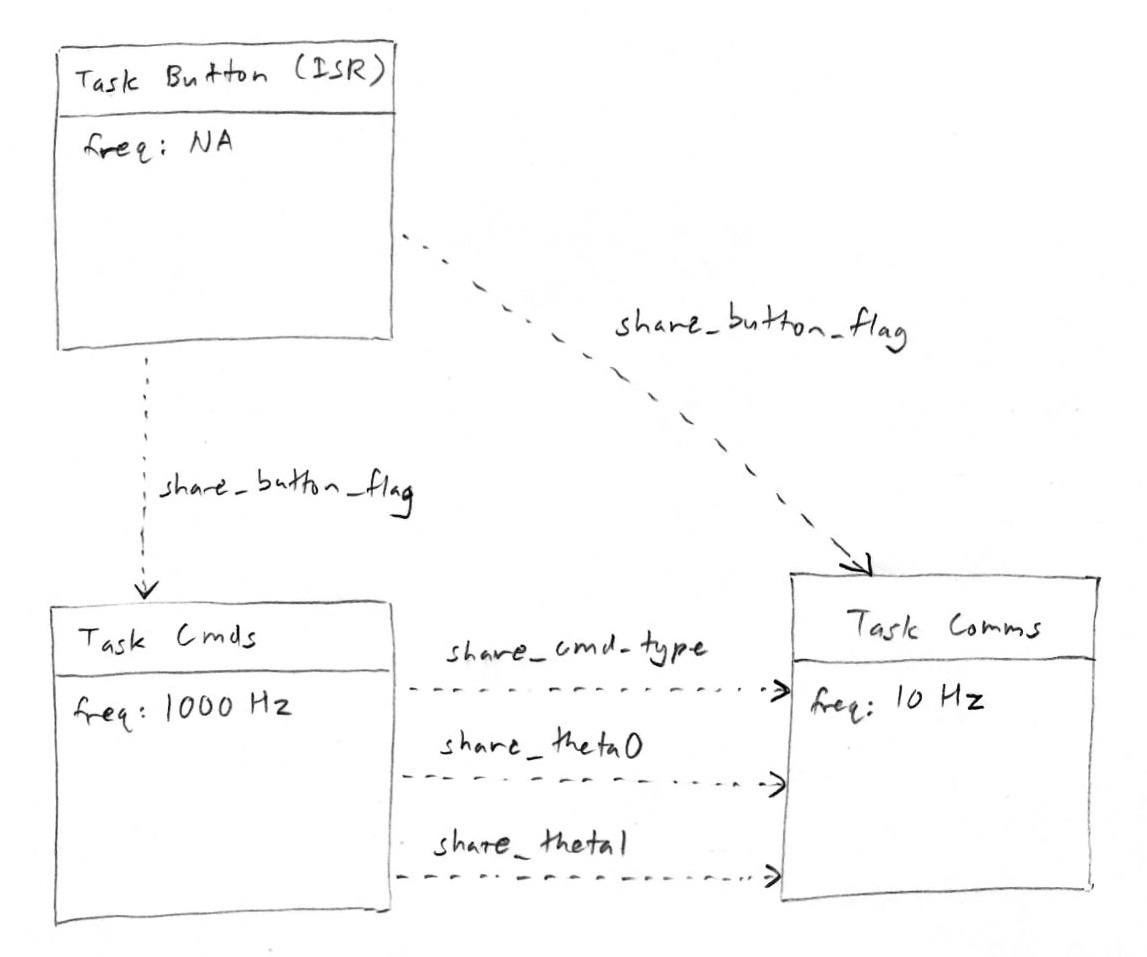 Task Button (ISR)
freq: NA
share_button_flag
share_button_flag
Task Cmds
freq: 1000 Hz
share_cmd-type
share_theta0
share_theta1
Task Comms
freq: 10 Hz